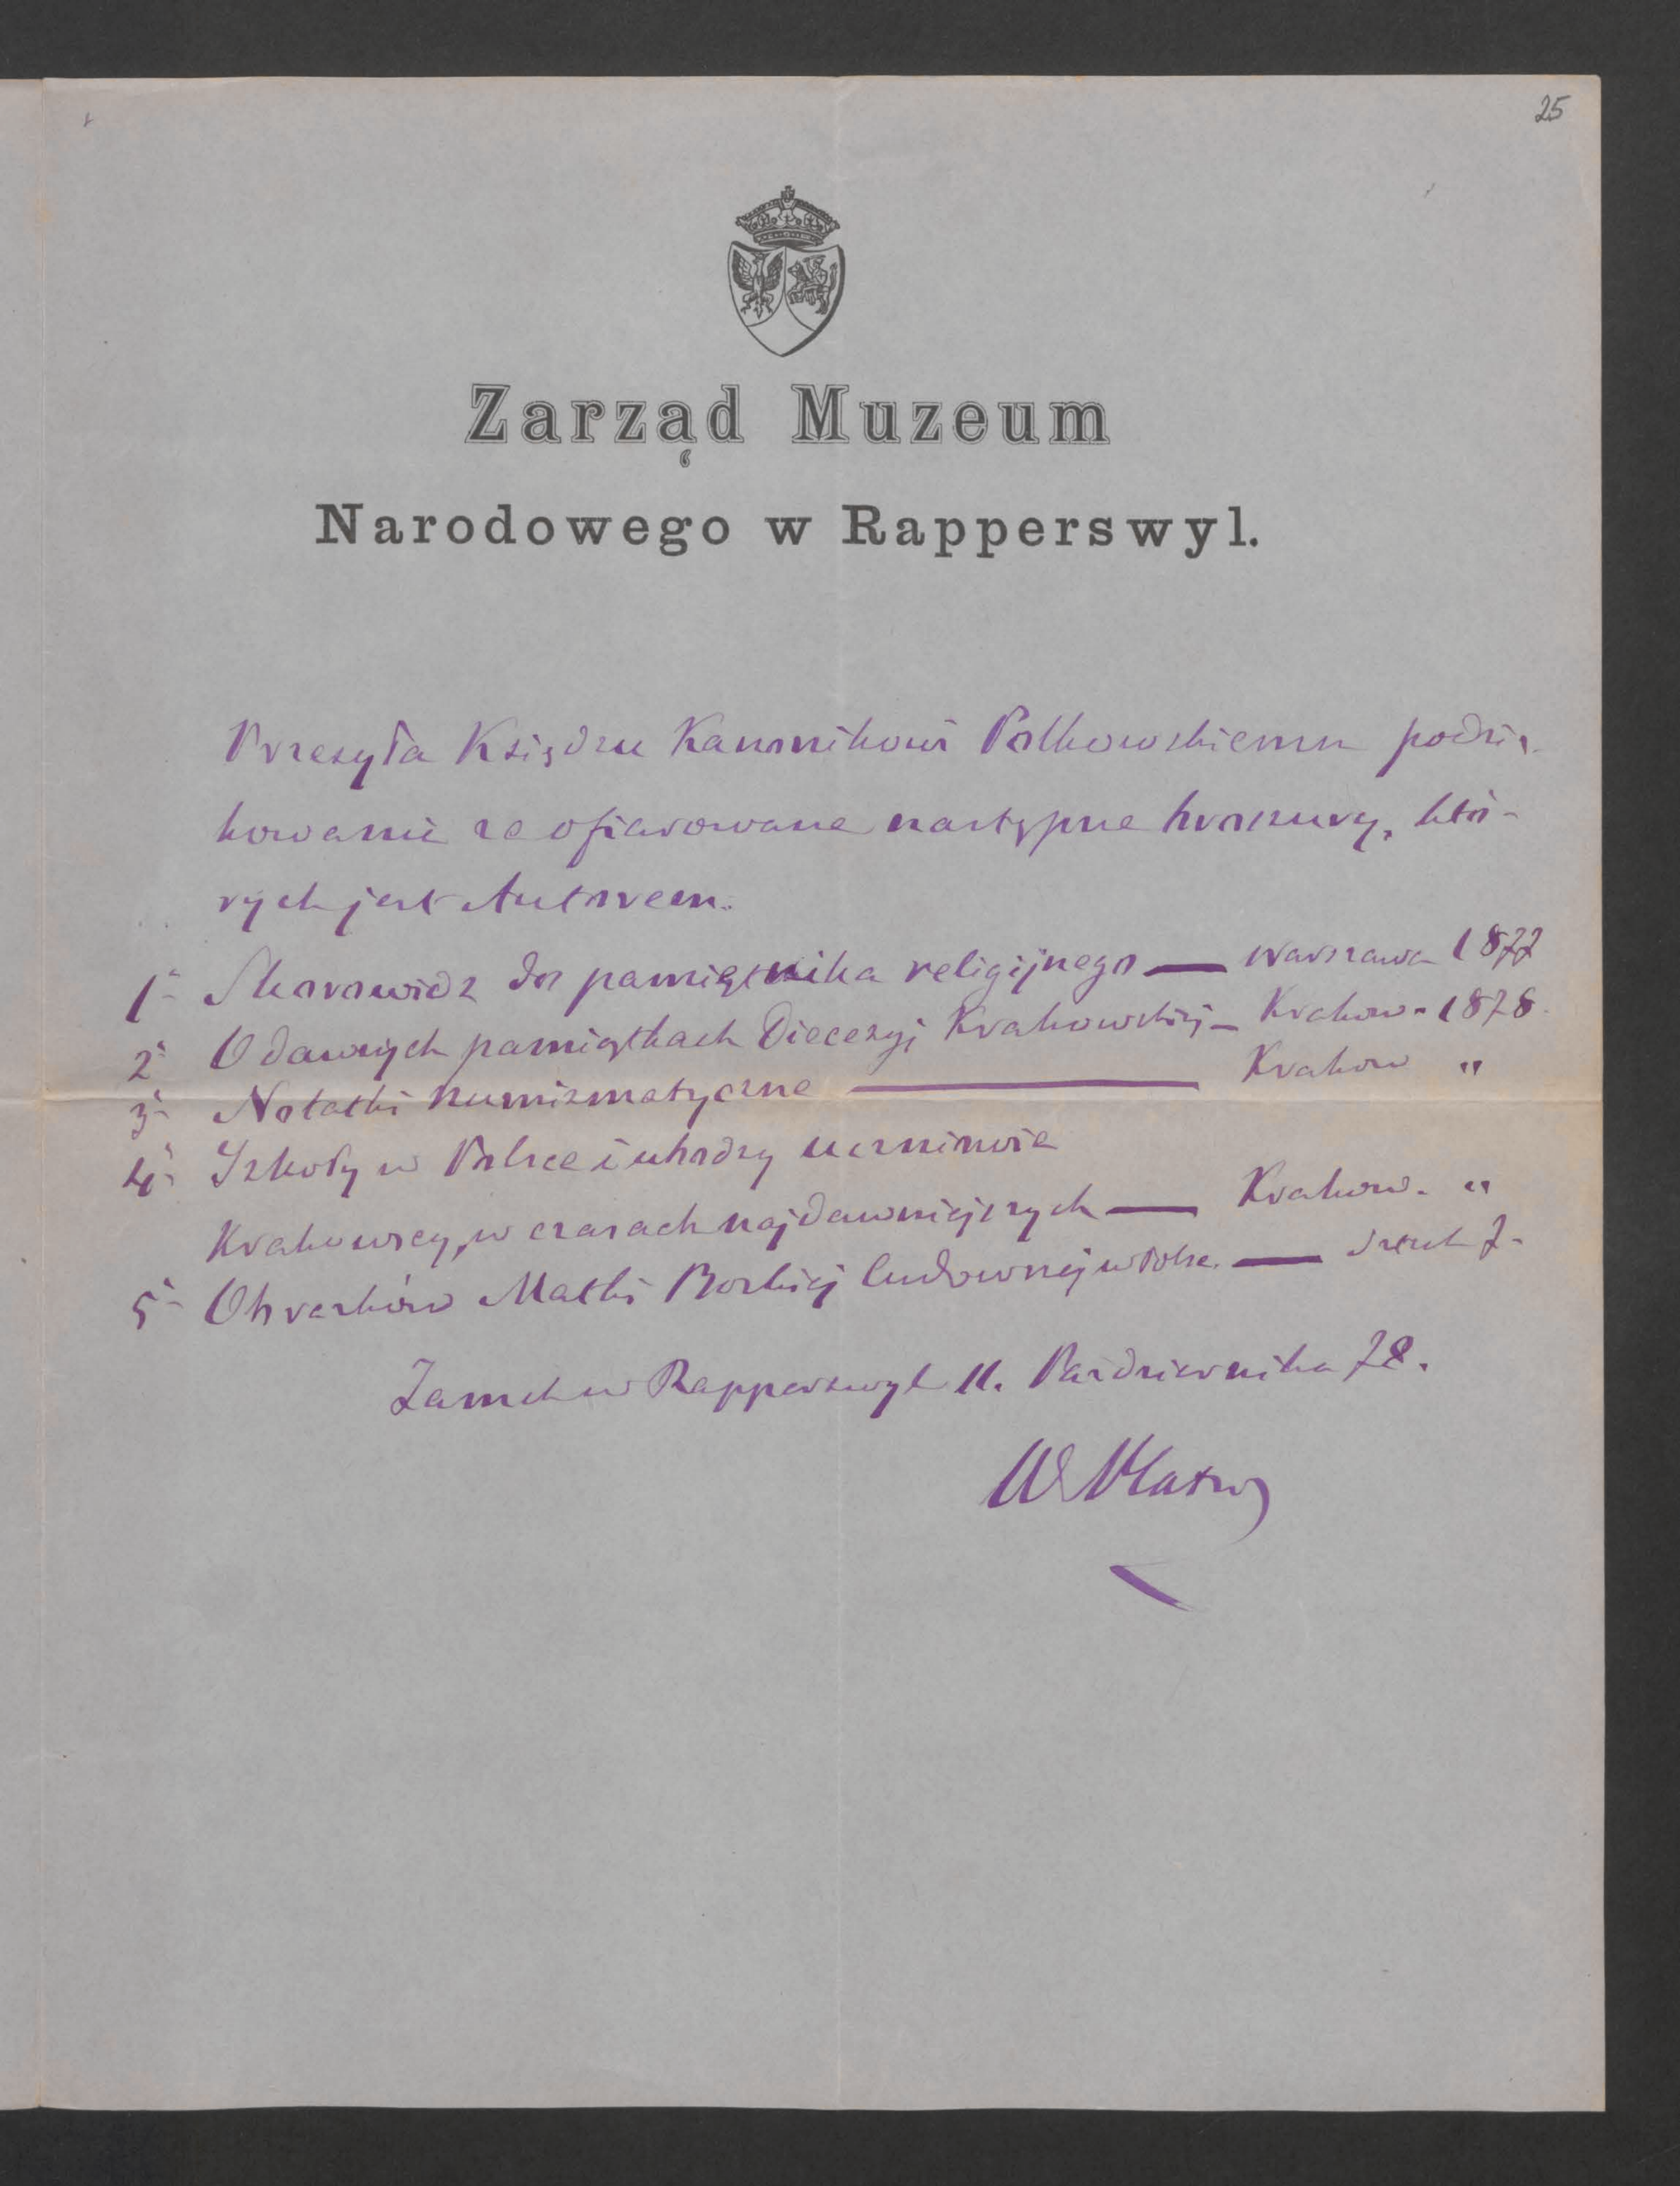 25
Zarząd Muzeum
Narodowego w Rapperswyl.
Przesyła Księdzu Kanonikowi Polkowskiemu podzię-
kowanie za ofiarowane następne broszury, któ-
rych jest Autorem.
1- Skorowidz do pamiętnika religijnego — Warszawa 1877
2- O dawnych pamiątkach Diecezyj Krakowskiej — Krakow - 1878.
3- Notatki numizmatyczne — Krakow "
4- Szkoły w Polsce i
Krakowscy, w czasach najdawniejszych — Krakow. "
5- Obrazków Matki Boskiej Cudownej w Polsce. — sztuk 7-
Zamek w Rapperswyl 11. Października 78.
W Plater